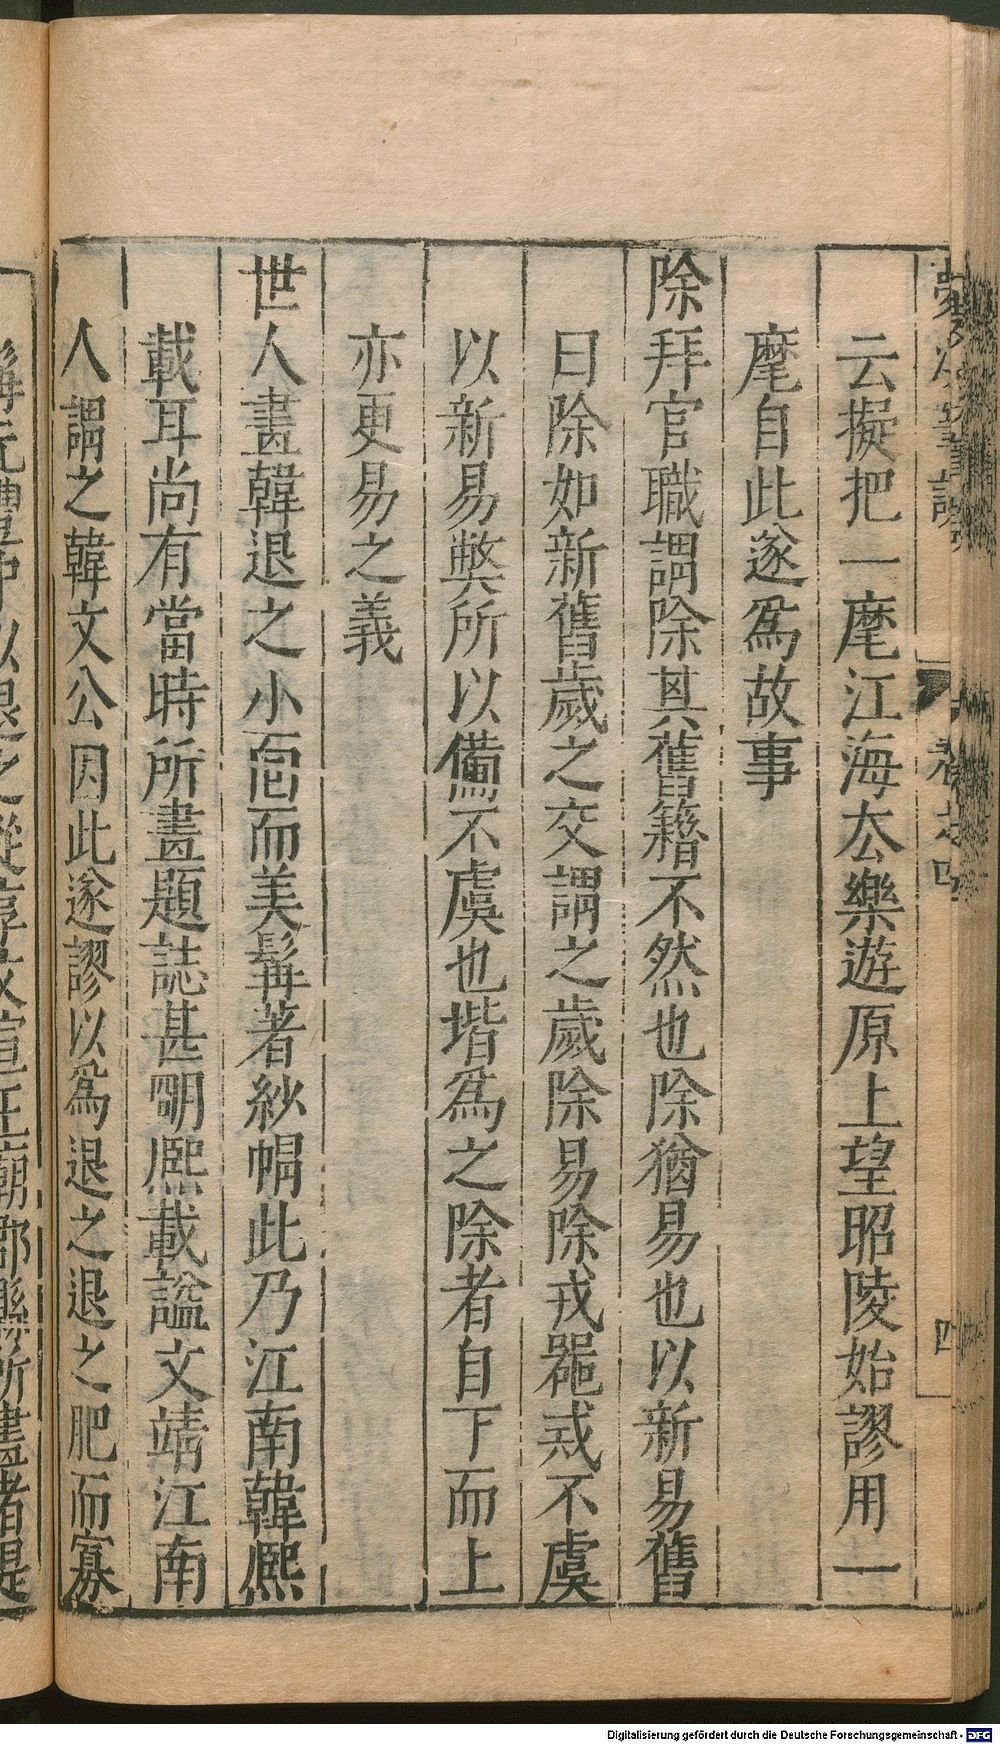 云擬把一麾江海去樂遊原上望昭陵始謬用一
麾自此遂爲故事
除拜官職謂除其舊籍不然也除猶易也以新易舊
曰除如新舊歲之交謂之歲除易除戎噐戒不虞
以新易弊所以備不虞也堦爲之除者自下而上
亦更易之義
世人畫韓退之小面而美髯著紗帽此乃江南韓熙
載耳尚有當時所畫題誌甚明熙載諡文靖江南
人謂之韓文公因此遂謬以爲退之退之肥而寡
卷之四
四
Digitalisierung gefördert durch die Deutsche Forschungsgemeinschaft - DFG